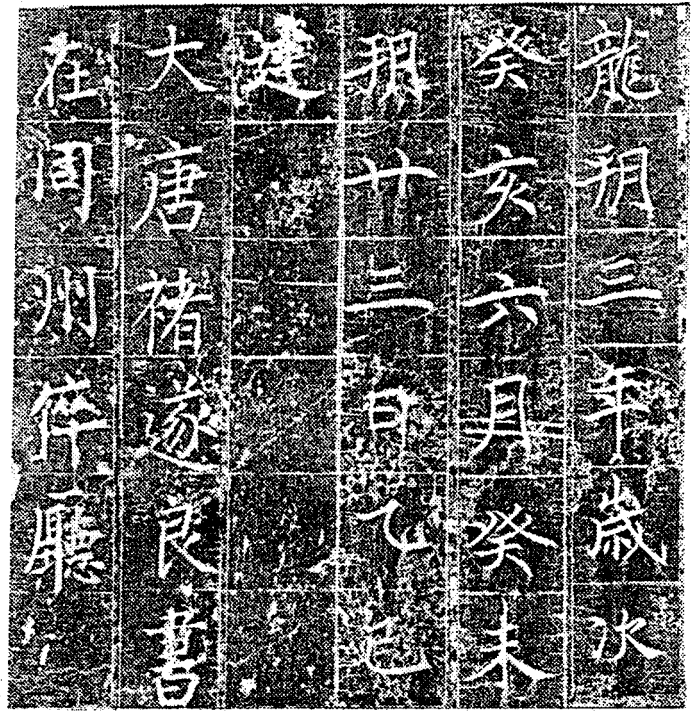 龍朔三年歲次
癸亥六月癸未
朔廿三日乙巳
建
大唐褚遂良書
在同州倅廳